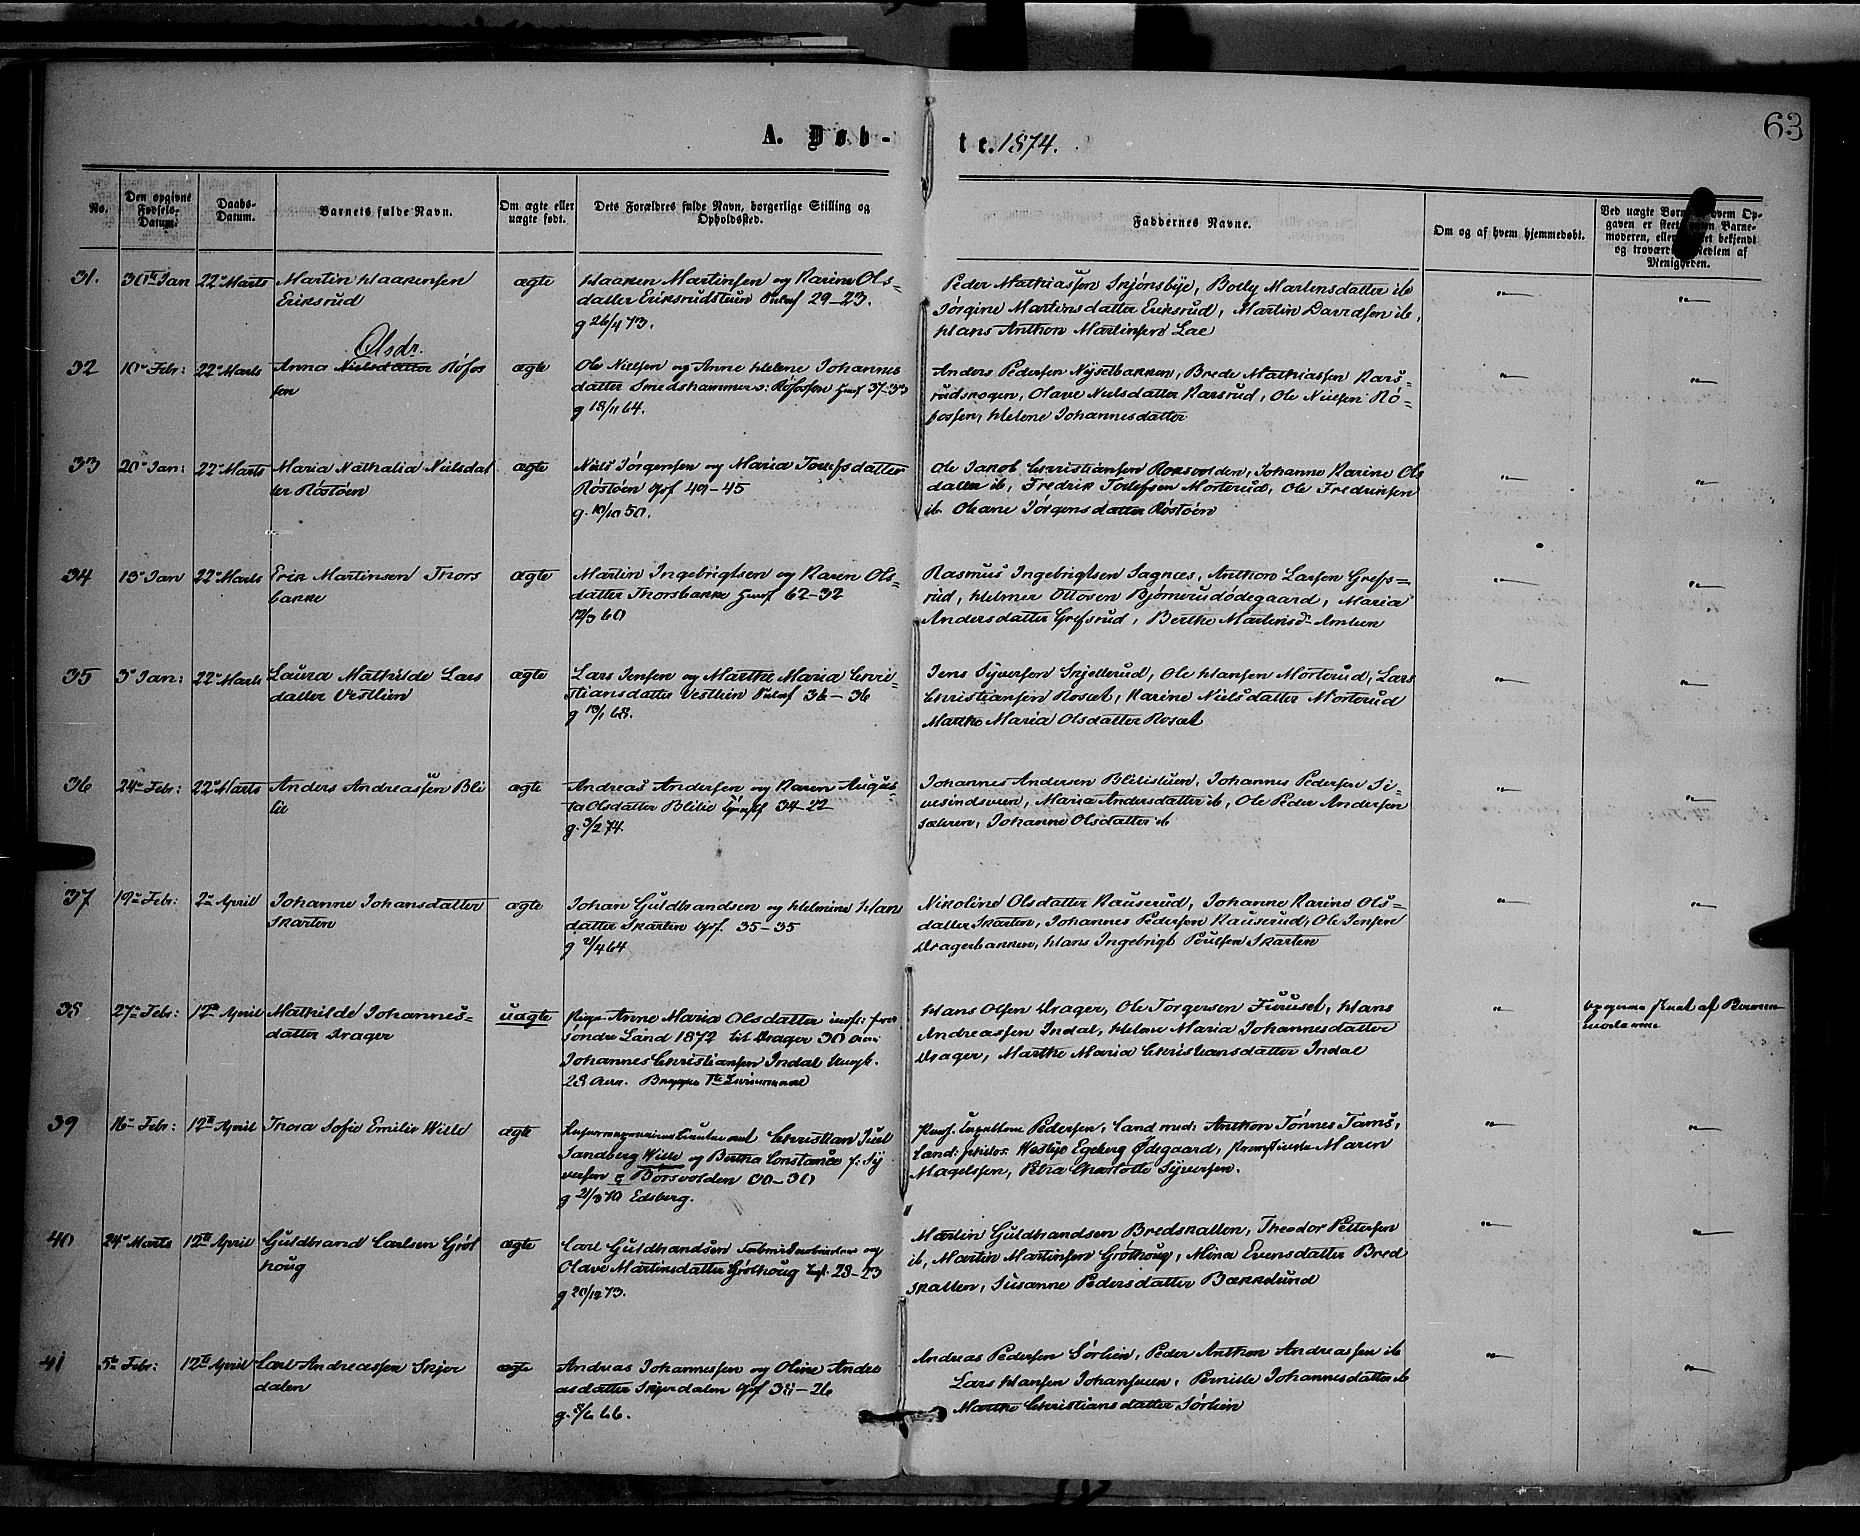 63
A. Døb-te. 1874.
No.
Den opgivne Fødsels-Datum.
Daabs-Datum.
Barnets fulde Navn.
Om ægte eller uægte født.
Dets Forældres fulde Navn, borgerlige Stilling og Opholdssted.
Faddernes Navne.
Om og af hvem hjemmedøbt.
Ved uægte hvem Op-
gaven er skeet Barne-
moderen, eller bekjendt
og trovær Medlem af
Menigheden.
31. 30te Jan 22de Marts Martin Haakensen
Eriksrud
ægte
Haaken Martinsen og Karine Ols-
datter Eriksrudstuen 29-23.
g 26/4 73.
Peder Mathiassen Skjønsbye, Boely Martensdatter ib
Jørgine Martinsdatter Eriksrud, Martin Davidsen ib,
Hans Anthon Martinsen Lae
" "
32 10de Febr: 22de Marts Anna Nielsdatter Olsdr. Røfos
sen
ægte
Ole Nielsen og Anne Helene Johannes
datter Smedshammer o: Røfossen Huusf 37-33
g 18/11 64.
Anders Pedersen Nysetbakken, Brede Mathiassen Kars-
rudskogen, Olave Nielsdatter Karsrud, Ole Nielsen Rø-
fossen, Helene Johannesdatter
" "
33 20de Jan: 22de Marts Maria Nathalia Nielsdat
ter Røstøen
ægte
Niels Jørgensen og Maria Toersdatter
Røstøen Gjf 49-45
g. 10/10 50.
Ole Jakob Christiansen Roksvolden, Johanne Karine Ols
datter ib, Fredrik Tollefsen Morterud, Ole Fredriksen
ib Oleane Jørgensdatter Røstøen
" "
34 13de Jan 22de Marts Erik Martinsen Thors
bakke
ægte
Martin Ingebrigtsen og Karen Ols-
datter Thorsbakke Huusf 62-32
12/3 60
Rasmus Ingebrigtsen Sagnes, Anthon Larsen Grefs-
rud, Helmer Ottosen Bjørnerudødegaard, Maria
Andersdatter Grefsrud, Berthe Martinsd. Amlien
" "
35 3de Jan: 22de Marts Laura Mathilde Lars
datter Vestlien
ægte
Lars Jensen og Marthe Maria Chri-
stiansdatter Vestlien 36-36
g 13/1 68.
Jens Syversen Skjellerud, Ole Hansen Morterud, Lars
Christiansen Roset, Karine Nielsdatter Morterud
Marthe Maria Olsdatter Roset
" "
36 24de Febr: 22de Marts Anders Andreassen Bli
lie
ægte
Andreas Andersen og Karen Augus
ta Olsdatter Blilie 34-22
g. 3/2 74.
Johannes Andersen Bliliestuen, Johannes Pedersen Si-
vesindsveen, Maria Andersdatter ib, Ole Peder Andersen
Sæteren, Johanne Olsdatter ib
" "
37 19de Febr: 2den April Johanne Johansdatter
Skarten
ægte
Johan Guldbrandsen og Helmine Hans
datter Skarten Gjf. 35-35
g 2/4 64
Nikoline Olsdatter Kauserud, Johanne Karine Ols-
datter Skarten, Johannes Pedersen Kauserud, Ole Jensen
Dragerbakken, Hans Ingebrigt Poulsen Skarten
" "
38 27de Febr: 12te April Mathilde Johannes-
datter Drager
uægte
Pige Anne Maria Olsdatter indf: fra
Søndre Land 1872 til Drager 30 Aar:
Johannes Christiansen Indal Ungk.
28 Aar. Begges 1ste Leiermaal
Hans Olsen Drager, Ole Torgersen Furuset, Hans
Andreassen Indal, Helene Maria Johannesdatter
Drager, Marthe Maria Christiansdatter Indal
"
Opgaven skeet af Barne
moderen
39 16de Febr: 12te April Thora Sofie Emilie Wille
ægte
Christian Juel
Sandberg Wille og Bertha Constance f: Sy
versen Børsvolden 30-30
g 21/3 70 Edsberg.
Pedersen, Cand med: Anthon Tønnes Tams,
Cand: philos: Westye Egeberg Ødegaard, Maren
Magelssen, Petra Charlotte Syversen.
" "
40 24de Marts 12te April Guldbrand Carlsen Grøt
houg
ægte
Carl Guldbrandsen og
Olave Martinsdatter Grøthoug 28-23
g 20/12 73.
Martin Guldbrandsen Bredskallen, Theodor Pettersen
ib, Martin Martinsen Grøthoug, Mina Evensdatter Bred
skallen, Susanne Pedersdatter Bækkelund
" "
41 5te Febr: 12te April Carl Andreassen Skjer
dalen
ægte
Andreas Johannessen og Oline Andre
asdatter Skjerdalen Gjf 38-26
g. 8/6 66.
Andreas Pedersen Sørlien, Peder Anthon Andreassen ib
Lars Hansen Johansveen, Pernille Johannesdatter ib
Marthe Christiansdatter Sørlien
" "